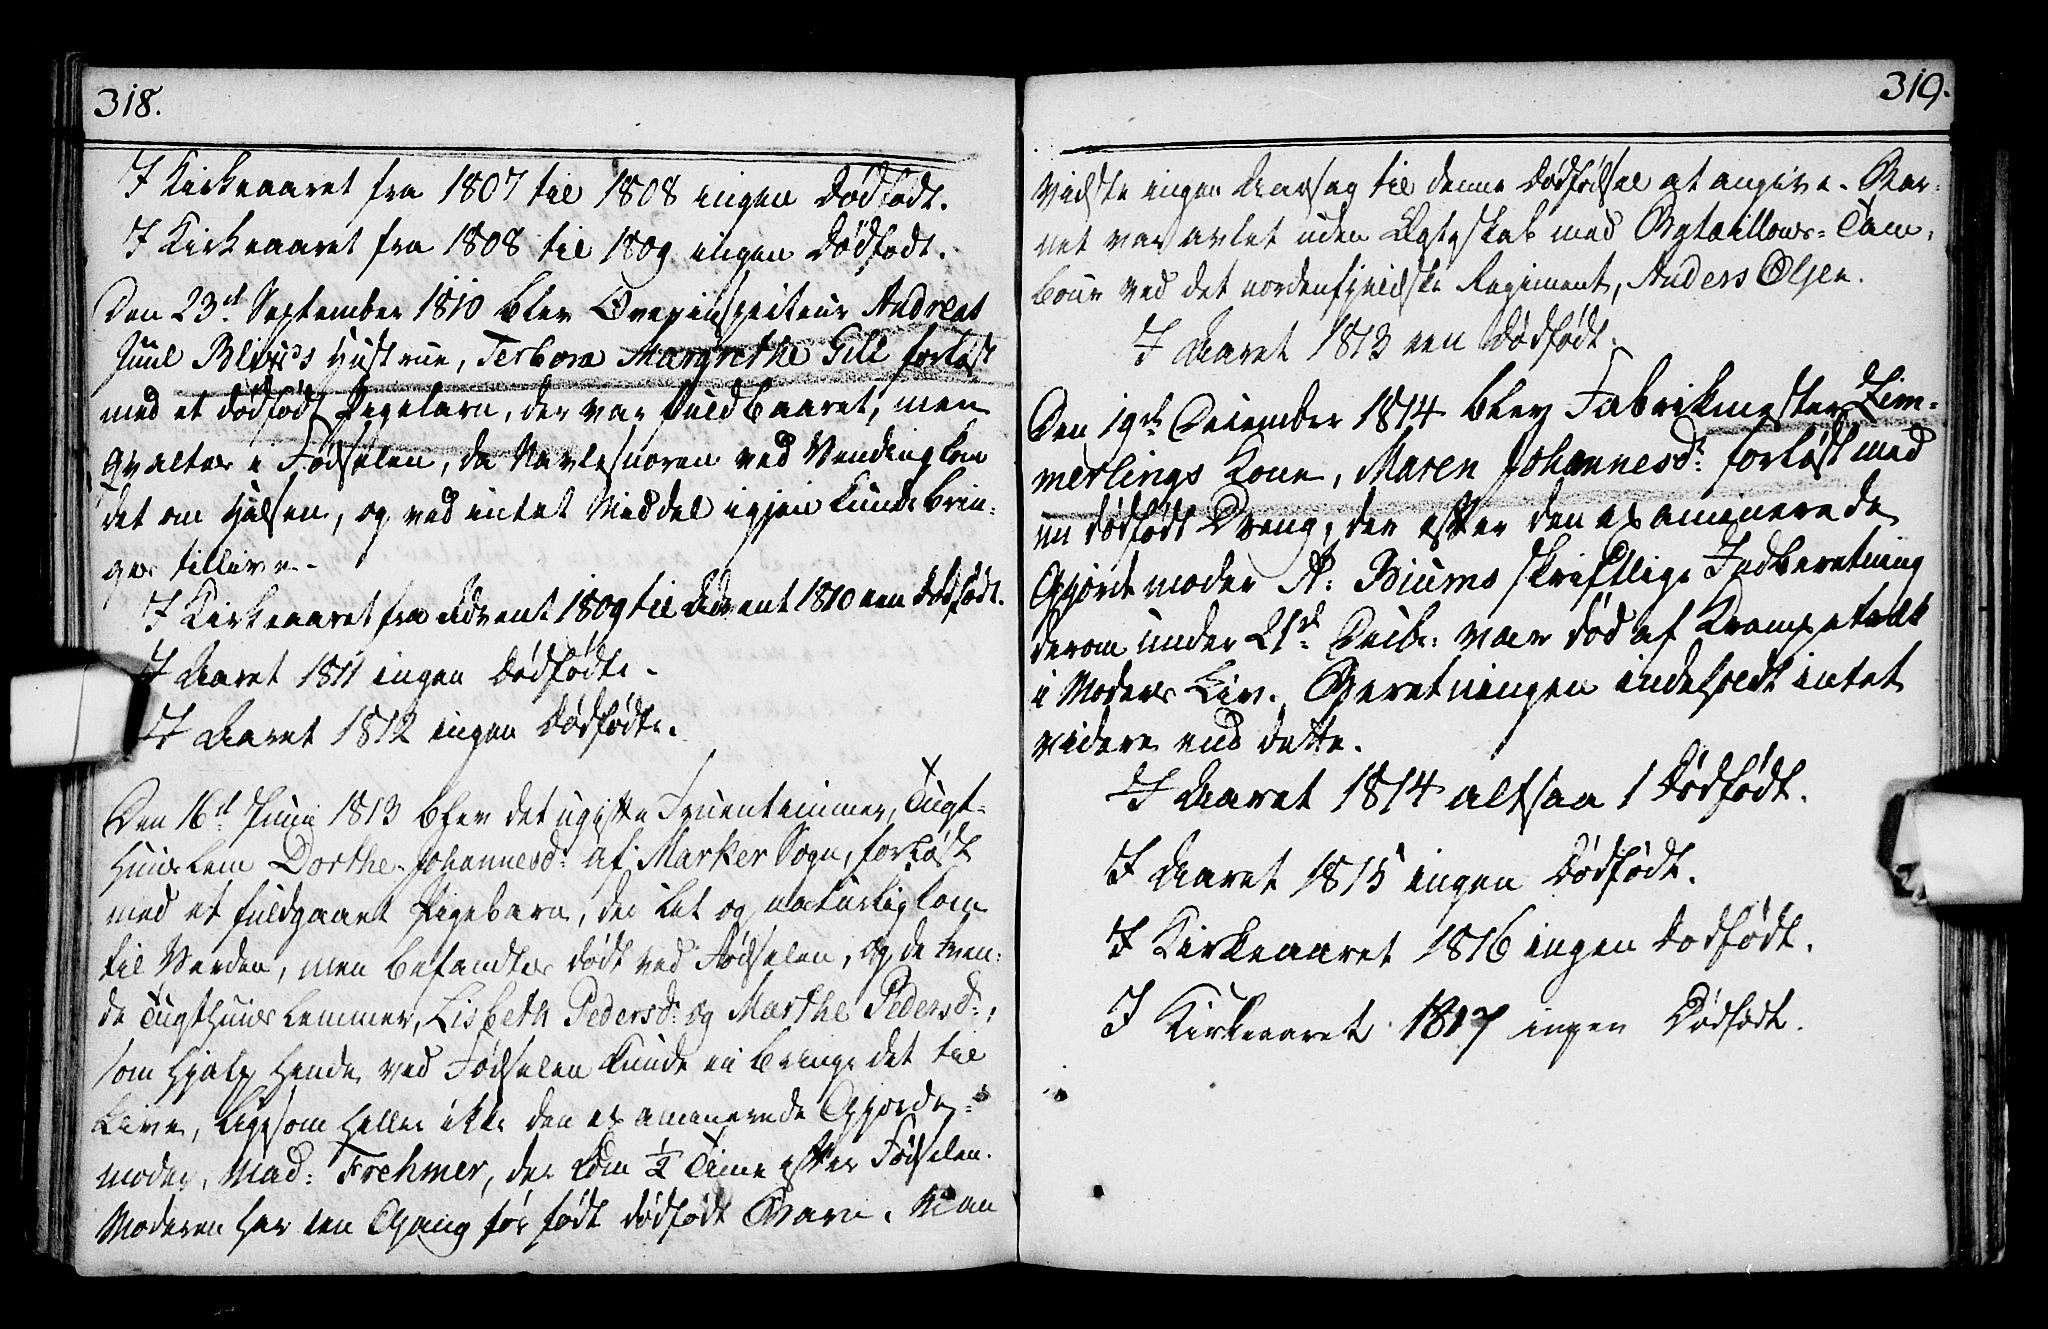 318.
I Kirkeaaret fra 1807 til 1808 ingen Dødfødt.
I Kirkeaaret fra 1808 til 1809 ingen Dødfødt.
Den 23d September 1810 blev Andreas
Juul Hustrue, Margrethe Gill forløst
med et dødfødt Pigebarn, der var fuldbaaret, men
qvaltes i Fødselen, da Navlesnoren ved Vending kom
det om Halsen, og ved intet Middel igjen kunde brin-
ges tillive.
I Kirkeaaret fra Advent 1809 til Advent 1810 een Dødfødt.
I Aaret 1811 ingen Dødfødte.
I Aaret 1812 ingen Dødfødte.
Den 16d Junii 1813 blev det ugifte Fruentimmer, Tugt-
huuslem Dorthe Johannesd: af Marker Sogn, forløst
med et fuldgaaet Pigebarn, der let og naturlig kom
til Verden, men befandtes dødt ved Fødselen, og de tven-
de Tugthuus Lemmer, Lisbeth Pedersd: og Marthe Pedersd:,
som hjalp hende ved Fødselen kunde ei bringe det til
Live, ligesom heller ikke den examinerede Gjorde-
moder, Mad: Frehmer, der kom ½ Time efter Fødselen.
Moderen har een Gang før født dødfødt Barn. Man
319.
vidste ingen Aarsag til denne Dødfødsel at angive. Bar-
net var avlet uden Ægteskab med Bataillons-Tam-
bour ved det nordenfjeldske Regiment, Anders Olsen.
I Aaret 1813 een Dødfødt.
Den 19de December 1814 blev Fabrikmester Zim-
merlings Kone, Maren Johannesd: forløst med
en dødfødt Dreng, der efter den examinerede
Gjordemoder A: Biurns skriftlige Indberetning
derom under 21d Decbr: var død af Krampetræk
i Moders Liv. Beretningen indeholdt intet
videre end dette.
I Aaret 1814 altsaa 1 Dødfødt.
I Aaret 1815 ingen Dødfødt.
I Kirkeaaret 1816 ingen Dødfødt.
I Kirkeaaret 1817 ingen Dødfødt.